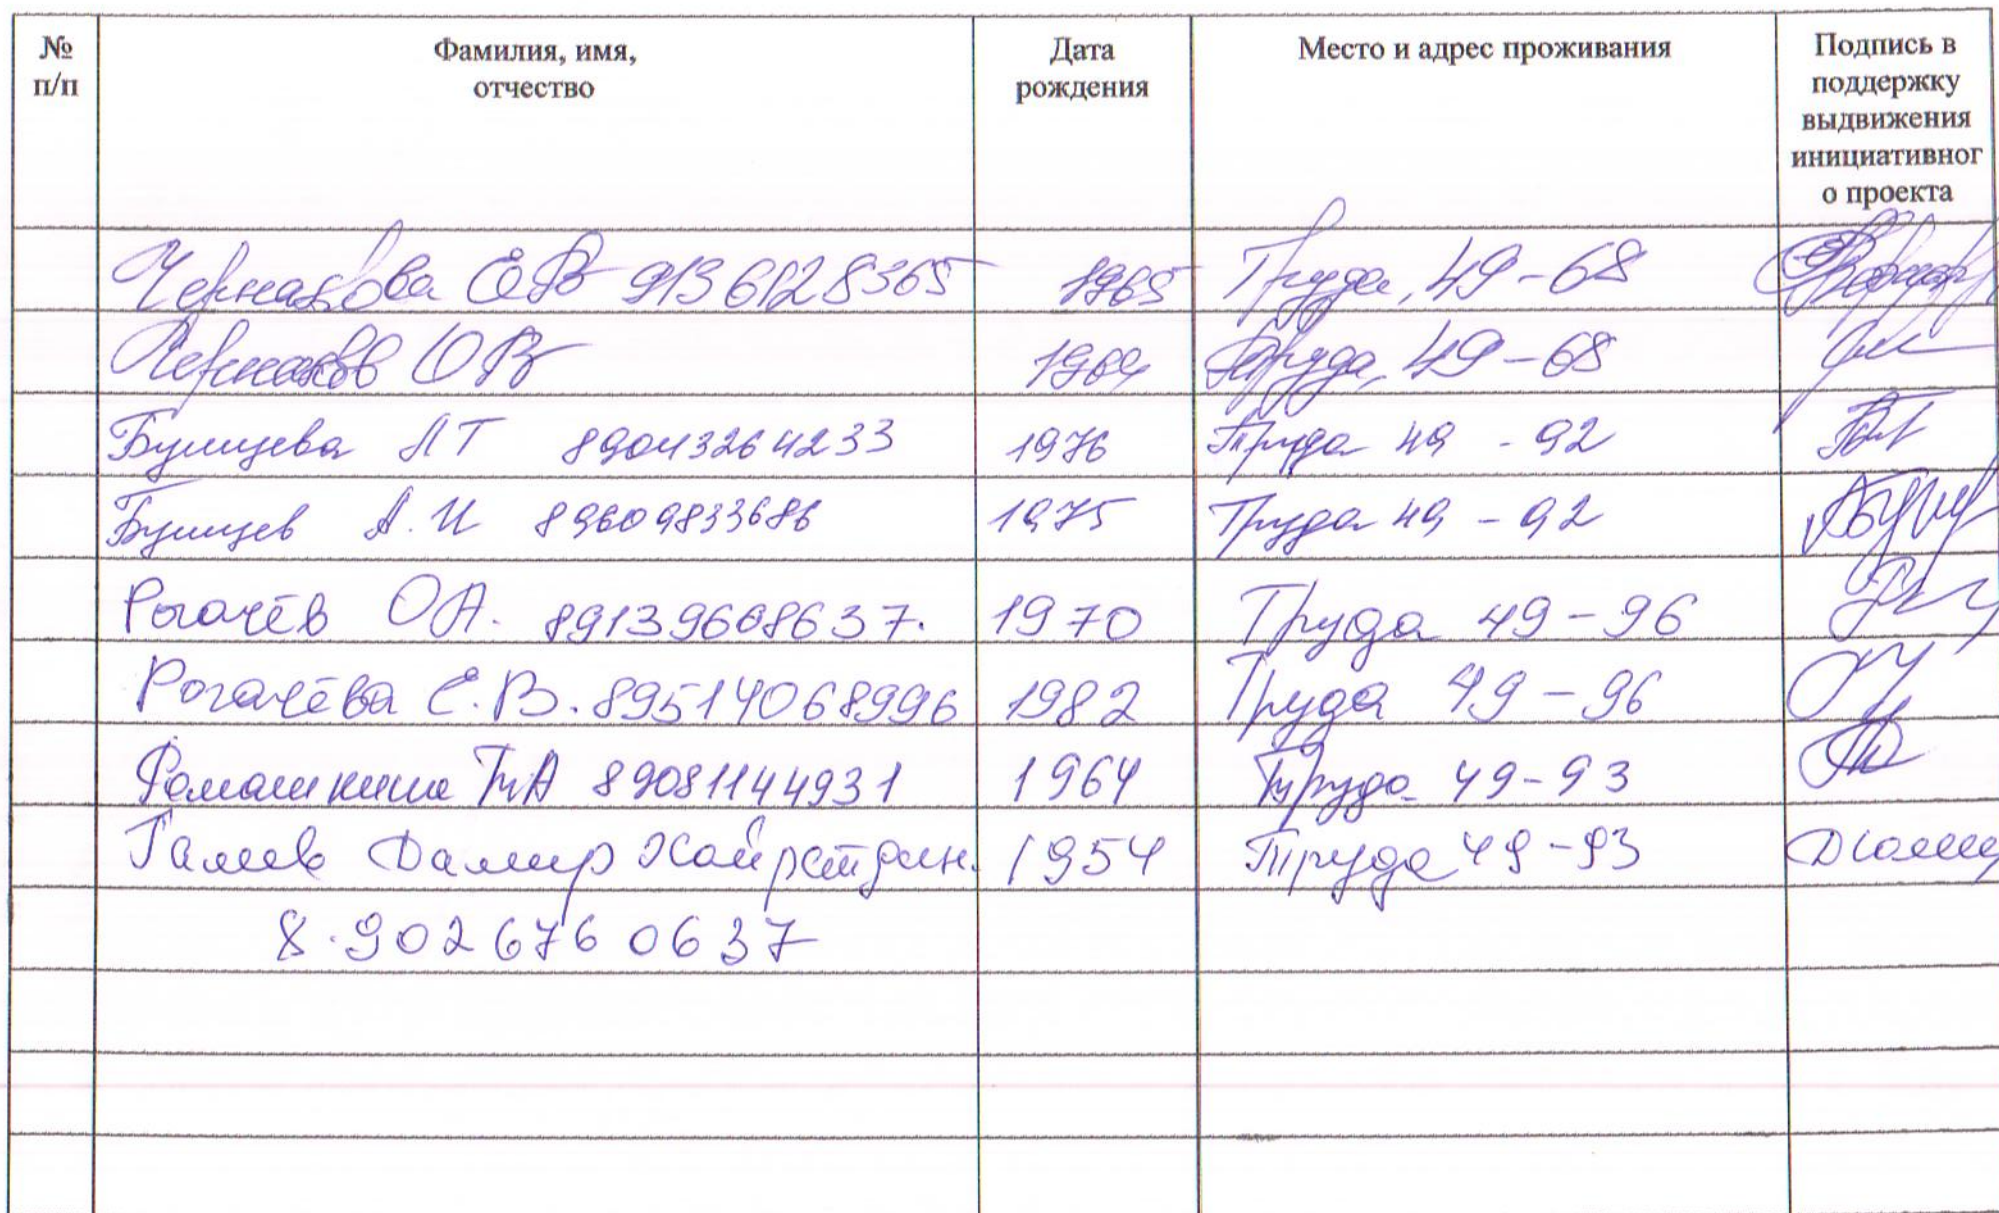 № п/п Фамилия, имя, отчество Дата рождения Место и адрес проживания Подпись в поддержку выдвижения инициативног о проекта
Чернакова Е В 9136128365 1965 Труда, 49-68
Чернаков Ю В 1964 Труда, 49-68
Бушцева Л Т 89043264233 1976 Труда 49 - 92
Бушцев А. И 89609833686 1975 Труда 49 - 92
Рогачёв О А. 89139608637. 1970 Труда 49-96
Рогачёва Е. В. 89514068996 1982 Труда 49-96
Т А 89081144931 1964 Труда 49-93
Дамир 1954 Труда 49-93
8.902 676 0637